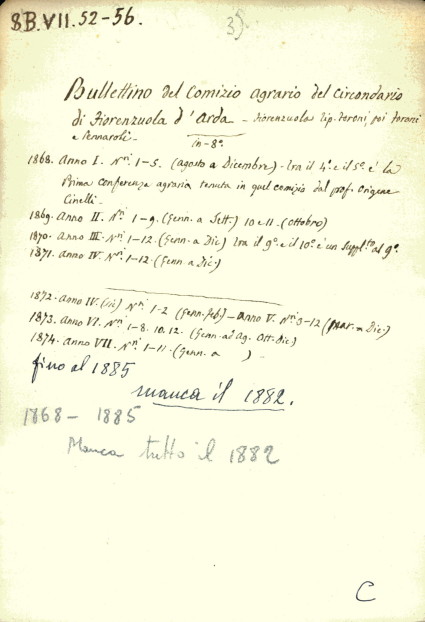 8B.VII.52-56.
3).
Bullettino del Comizio agrario del Circondario
di Fiorenzuola d'Arda - Fiorenzuola tip. Foroni, poi Foroni
e Pennaroli -
in-8º
1868. Anno I. Nri 1-5. (agosto a Dicembre) - tra il 4º e il 5º è la
Prima conferenza agraria tenuta in quel comizio dal prof. Origene
Cinelli -
1869. Anno II. Nri 1-9. (Genn. a Sett) 10 e 11. (Ottobre)
1870. Anno III. Nri 1-12. (Genn. a Dic) tra il 9º e il 10º è un Supplto al 9º.
1871. Anno IV. Nri 1-12. (Genn a Dic)
1872. Anno IV. (sic) Nri 1-2 (Genn. feb) - Anno V. Nri 3-12 (Mar. a Dic)
1873. Anno VI. Nri 1-8. 10. 12. (Genn. ad Ag. Ott. Dic)
1874. Anno VII. Nri 1-11. (Genn. a ) -
fino al 1885
manca il 1882.
1868 - 1885
Manca tutto il 1882
C